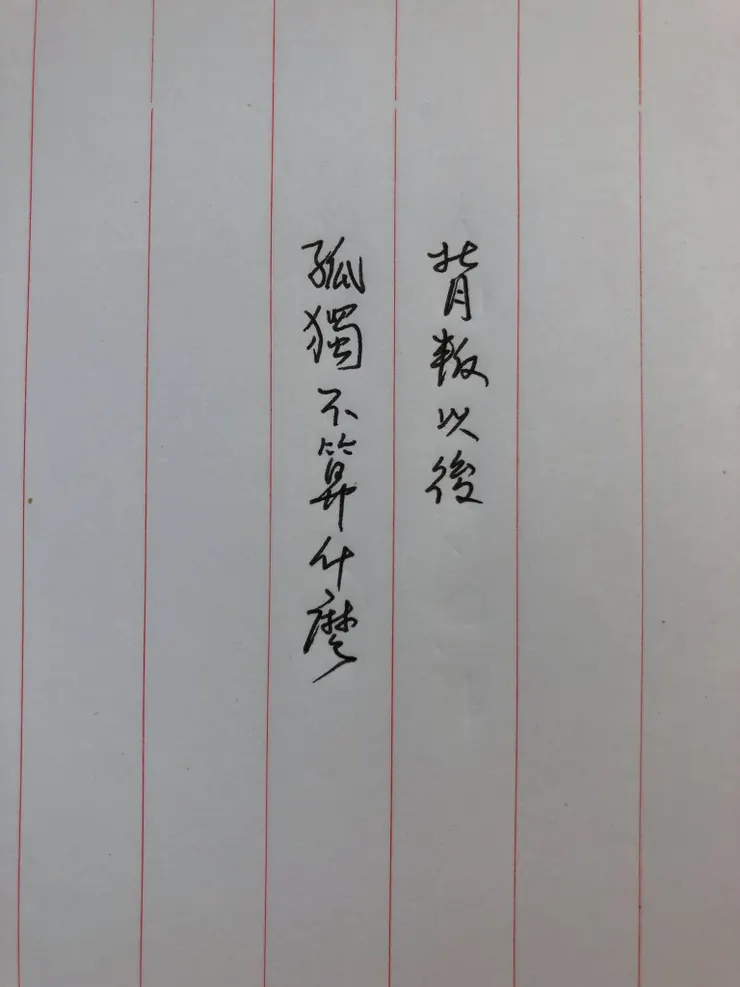 背叛以後
孤獨不算什麼